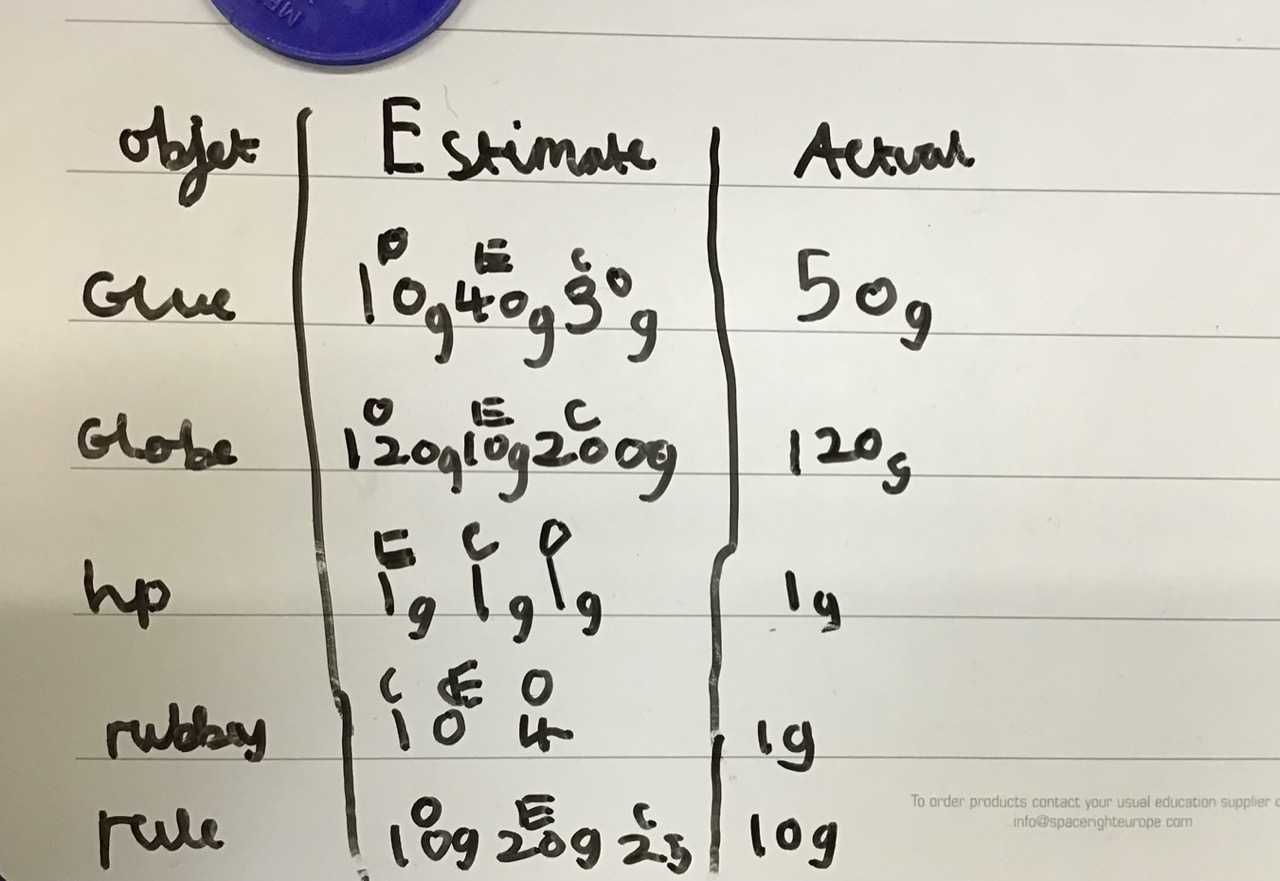 objet Estimate Actual
O E C
Glue 10g 40g 30g 50g
O E C
Globe 120g 10g 200g 120g
E C O
hp 1g 1g 1g 1g
C E O
1 0 4 1g
O E C
rule 10g 20g 25 10g
To order products contact your usual education supplier
info@spacerighteurope.com